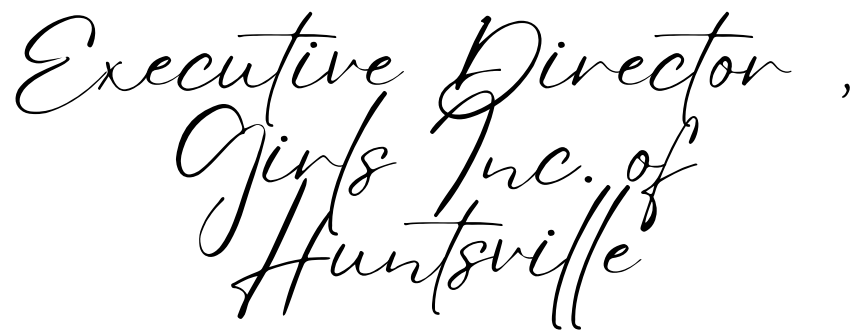 Executive Director ,
Girls Inc. of
Huntsville